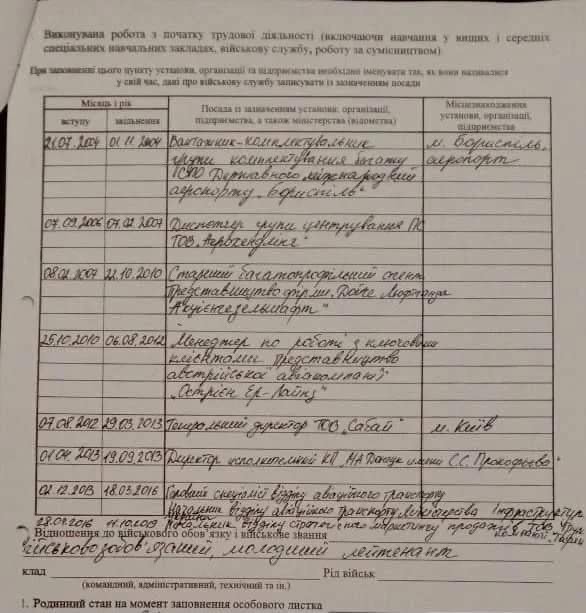 Виконувана робота з початку трудової діяльності (включаючи навчання у вищих і середніх
спеціальних навчальних закладах, військову службу, роботу за сумісництвом)
При заповненні цього пункту установи, організації та підприємства необхідно іменувати так, як вони називалися
у свій час, дані про військову службу записувати із зазначенням посади
Місяць і рік
вступу
звільнення
Посада із зазначенням установи, організації,
підприємства, а також міністерства (відомства)
Місцезнаходження
установи, організації,
підприємства
21.07.2004 01.11.2004 Вантажник-комплектувальник м. Бориспіль,
групи комплектування багажу аеропорт
Державного міжнародний
аеропорту „Бориспіль"
07.09.2006 07.02.2007 Диспетчер групи центрування ПС
ТОВ „Аерохендлінг"
08.02.2007 22.10.2010 Старший багатопрофільний агент
Представництво фірми „Дойче Люфтганза
Акцієнгезельшафт"
25.10.2010 06.08.2012 Менеджер по роботі з ключовими
клієнтами представництво
австрійської авіакомпанії
„Острієн Ер-Лайнз"
07.08.2012 29.03.2013 Генеральний директор ТОВ „Сабай" м. Київ
01.04.2013 19.09.2013 Директор исполнительний КП „НА Донецк имени С.С. Прокофьева"
02.12.2013 18.03.2016 Головний спеціаліст відділу авіаційного транспорту
Начальник відділу авіаційного транспорту Міністерства Інфраструктури
України
2016 начальник відділу стратегічного маркетингу продажів ТОВ
Відношення до військового обов'язку і військове звання
військовозобов'язаний, молодший лейтенант
клад
Рід військ
(командний, адміністративний, технічний та ін.)
Родинний стан на момент заповнення особового листка